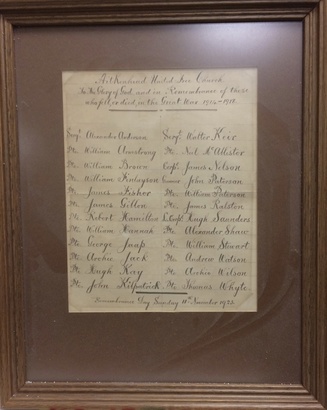 Kirkwood United Free Church
To the Glory of God, and in Remembrance of those
who fell or died in the Great War 1914-1918.
Sergt. Alexander Anderson Sergt. Walter Keir
Pte. William Armstrong Pte. Neil McAllister
Pte. William Brown Corpl. James Nelson
Pte. William Finlayson John Paterson
Pte. James Fisher Pte. William Paterson
Pte. James Gillon Pte. James Ralston
Pte. Robert Hamilton L. Corpl. Hugh Saunders
Pte. William Hannah Pte. Alexander Shaw
Pte. George Jaap Pte. William Stewart
Pte. Archie Jack Pte. Andrew Watson
Pte. Hugh Kay Pte. Archie Wilson
Pte. John Kilpatrick Pte. Thomas Whyte
Remembrance Day Sunday 11th November 1923.